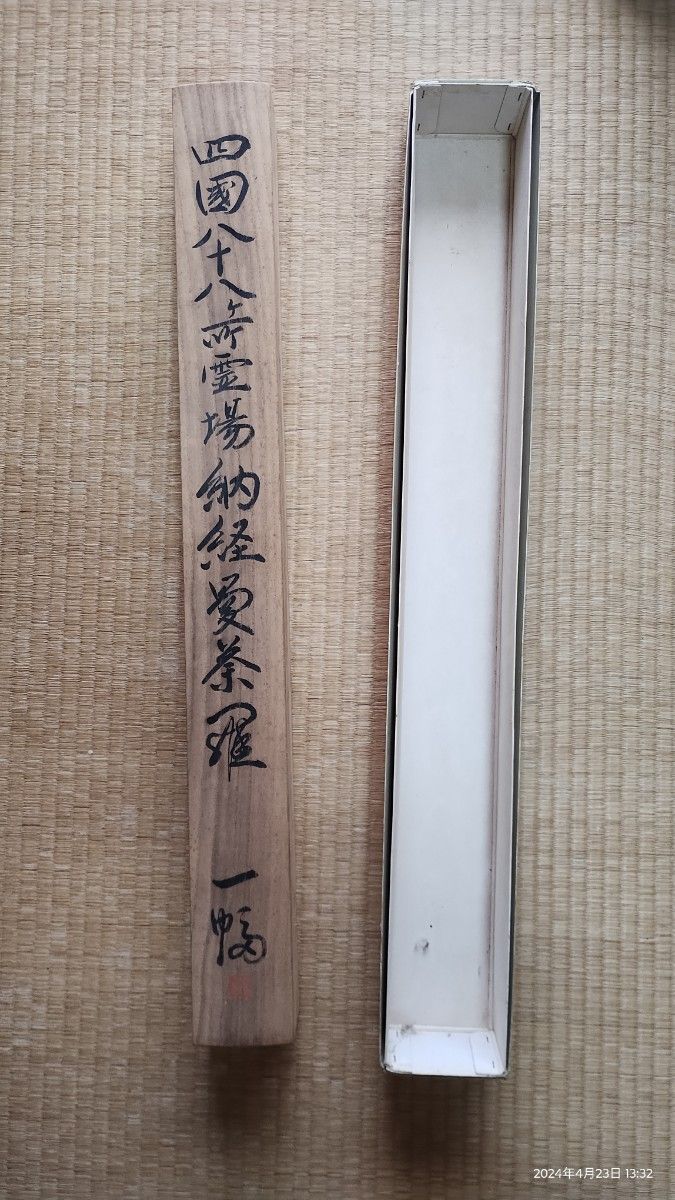 四國八十八ヶ所霊場納経曼荼羅 一幅
2024年4月23日 13:32